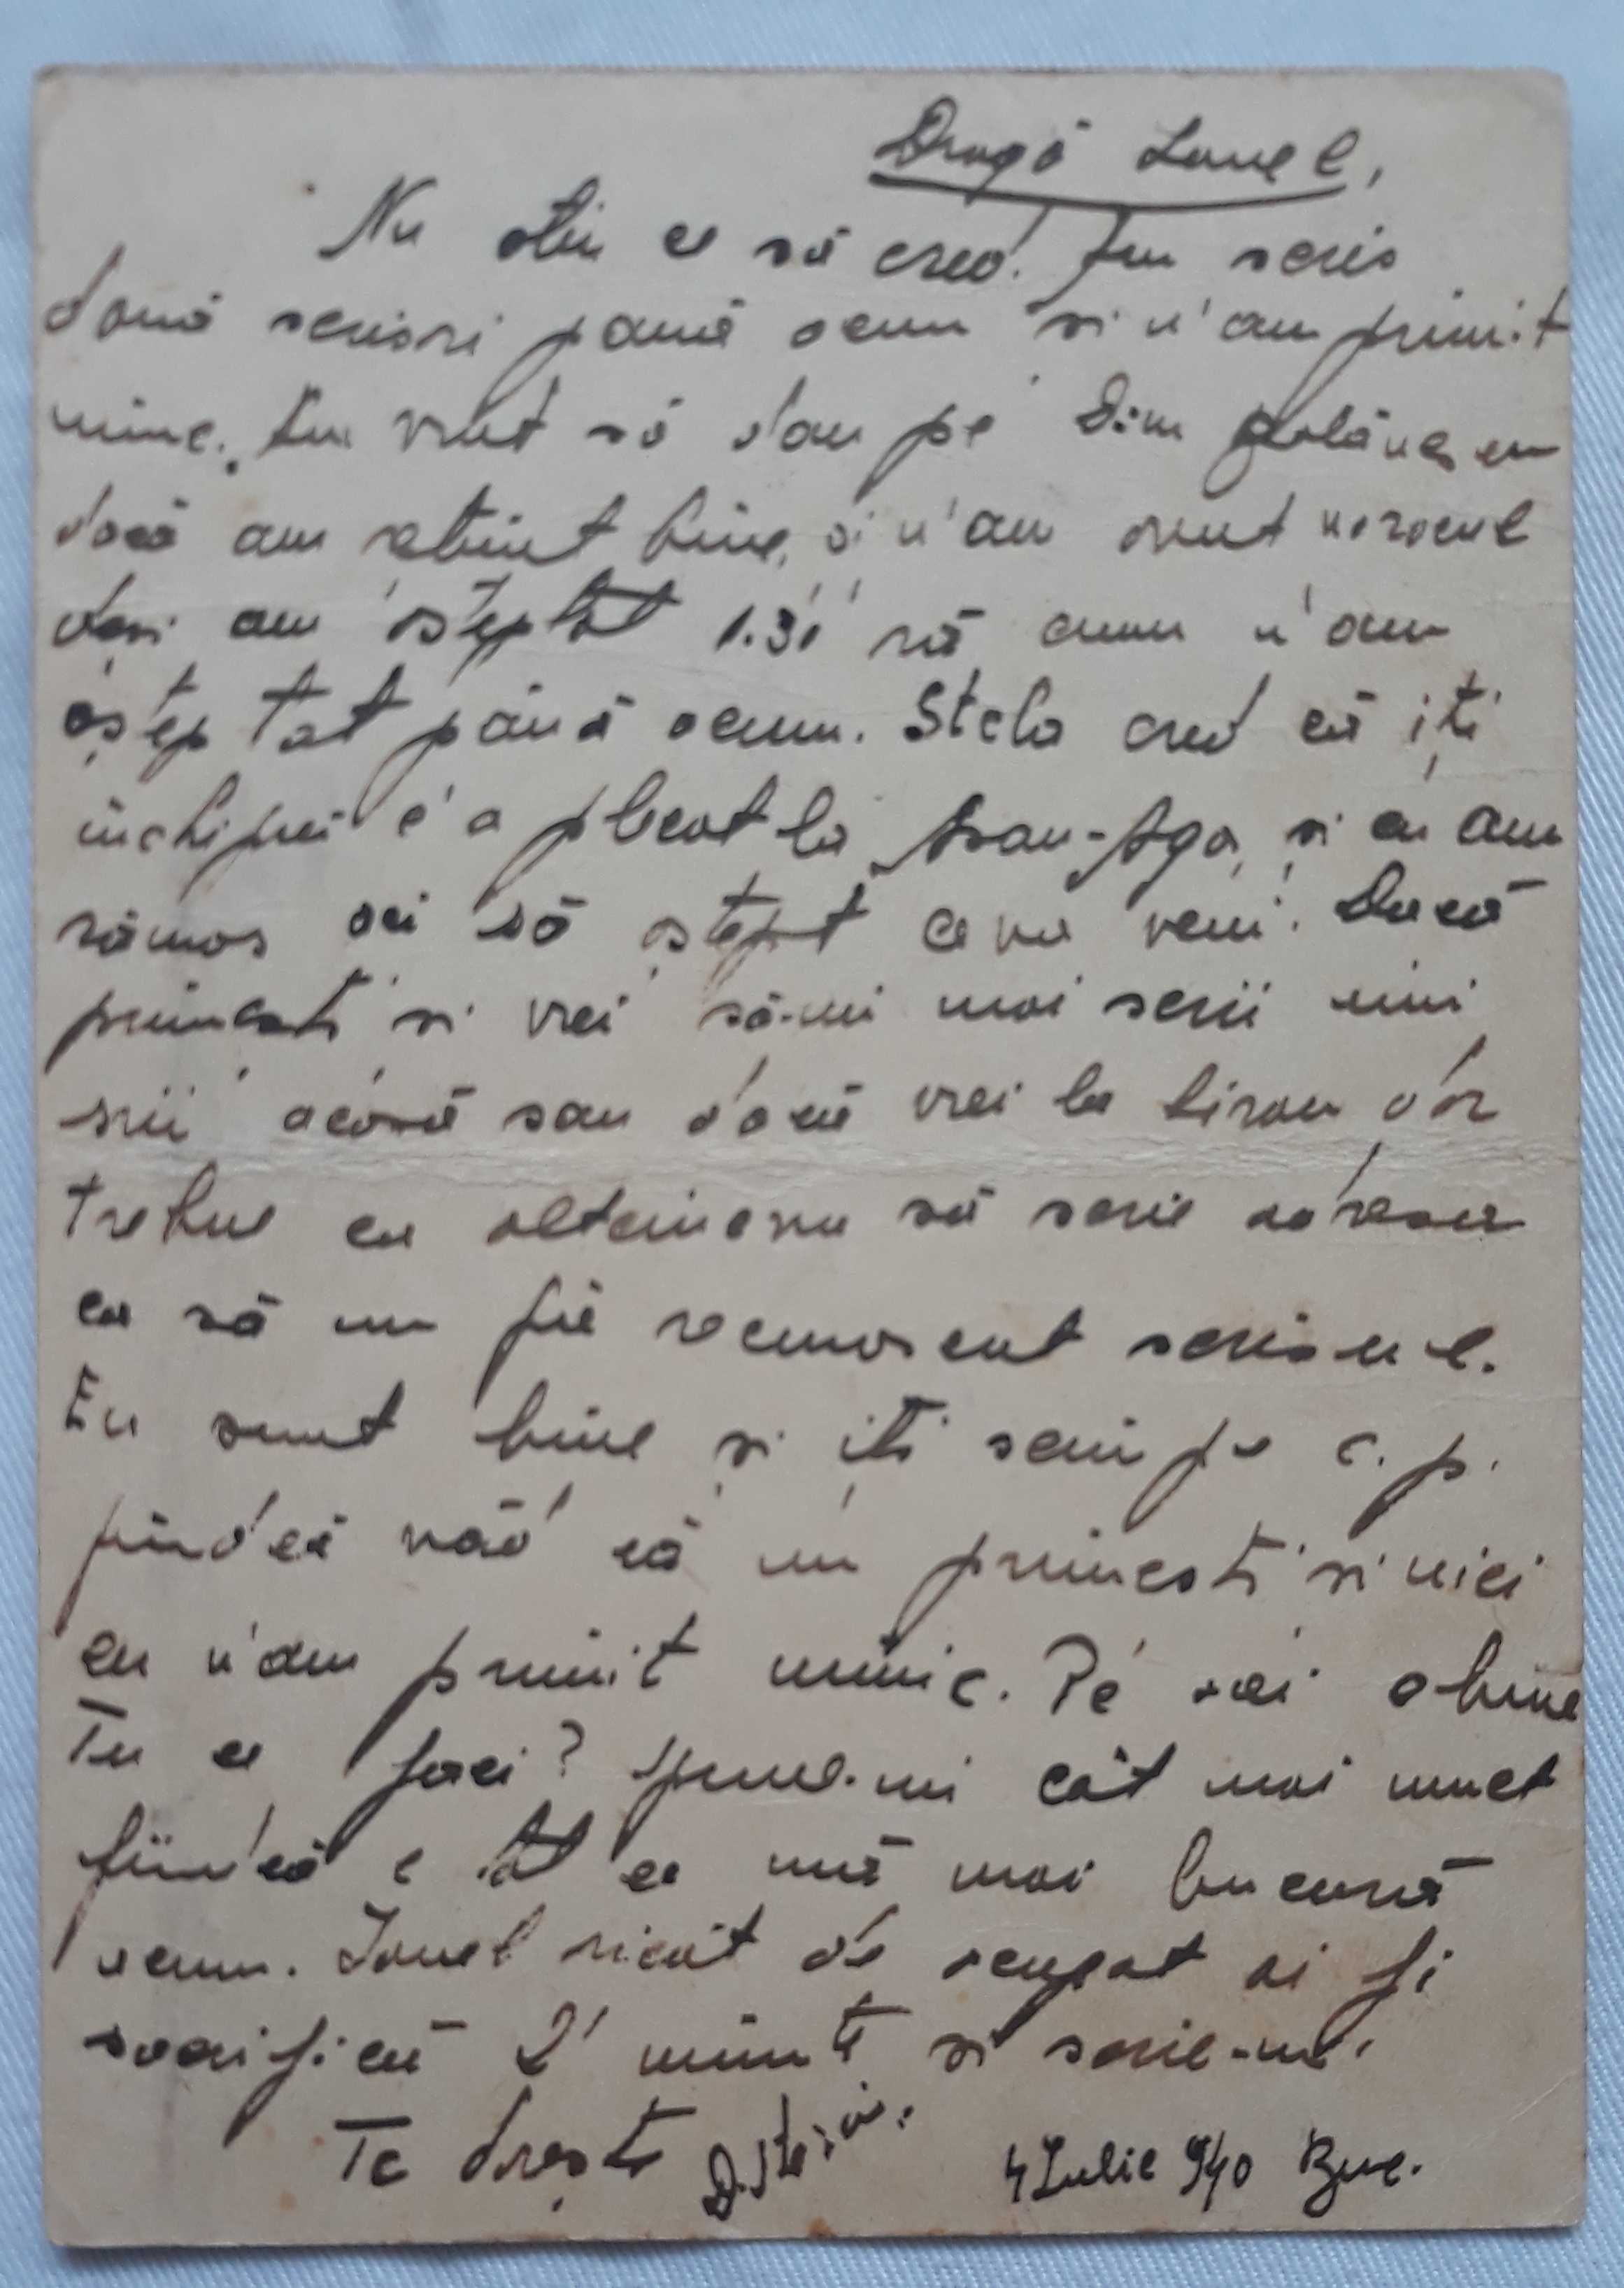 Dragă Ionel,
Nu știu ce să cred. Am scris
două scrisori până acum și n'am primit
nimic. Am vrut să dau pe Dim
dacă am reținut bine, și n'am avut norocul
deși am așteptat să n'am
așteptat până acum. Stela cred că îți
închipui c'a plecat la Asan-Aga, și eu am
rămas aici să aștept ce va veni. Dacă
primești și vrei să-mi mai scrii
scrii acasă sau dacă vrei la birou dar
trebue ca altcineva să scrie adresa
ca să nu fie recunoscut scrisul.
Eu sunt bine și îți scriu pe c. p.
fiindcă văd că nu primești și nici
eu n'am primit nimic. Pe aici e bine
Tu ce faci? Spune-mi cât mai mult
fiindcă e tot ce mă mai bucură
acum. Ionel oricât de ocupat ai fi
sacrifică 2' minute și scrie-mi.
Te dorește
4 Iulie 940 Buc.